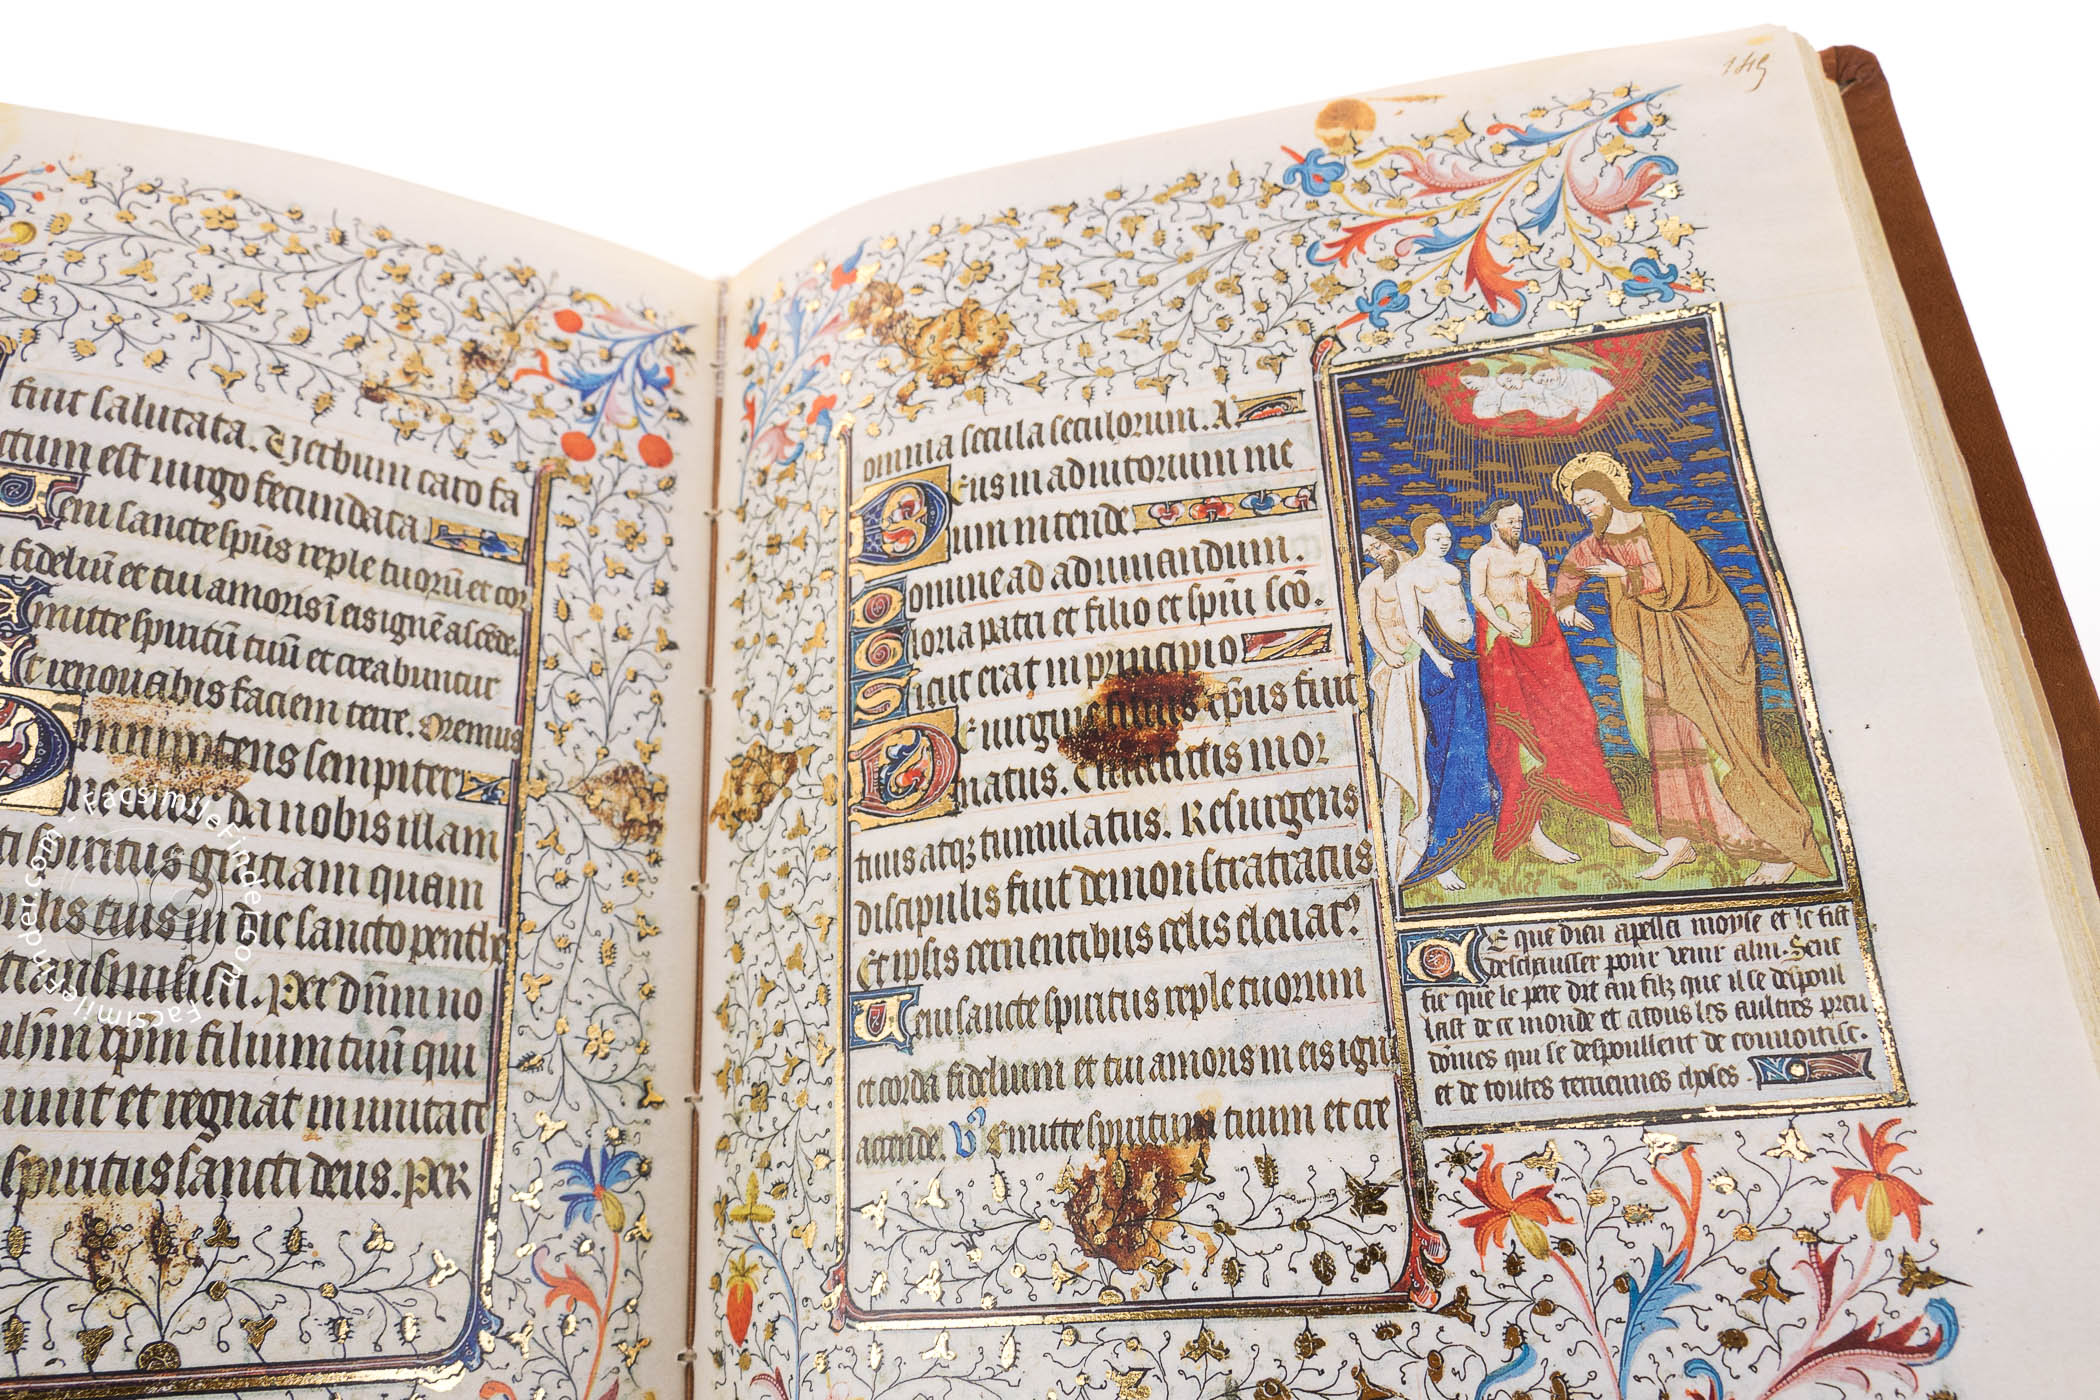 fuit salutata. Verbum caro fa
ctum est virgo fecundata
Veni sancte sp̃us reple tuorũ et cor
fideliũ et tui amoris ĩ eis ignẽ ascẽde.
Emitte spiritũ tuũ et creabuntur
Et renovabis faciem terre. Oremus
Omnipotens sempiter
ne deus, da nobis illam
sancti spiritus gratiam quam
discipulis tuis in die sancto penthe
transmisisti. Per dñm no
ihm̃ xpm̃ filium tuũ qui
vivit et regnat in unitate
spiritus sancti deus. Per
149
omnia secula seculorum. A.
Deus in adiutorium me
um intende
Domine ad adiuvandum.
Gloria patri et filio et spiri scõ.
Sicut erat in principio
De virgine xp̃us fuit
natus. Crucifictis mor
tuus atqz tumulatus. Resurgens
discipulis fuit demonstratratus
Et ipsis cernentibus celis elevat9
Veni sancte spiritus reple tuorum
et corda fidelium et tui amoris in eis igne
accende. V9 Emitte spiritum tuum et cre
Ce que dieu apella moyse et le fist
deschausser pour venir a lui. Sene
fie que le pere dit au filz que il se despoul
last de ce monde et a tous les aultres preu
dõmes qui se despoullent de convoitise.
et de toutes terriennes choses.
FacsimileFinder.com
FacsimileFinder.com